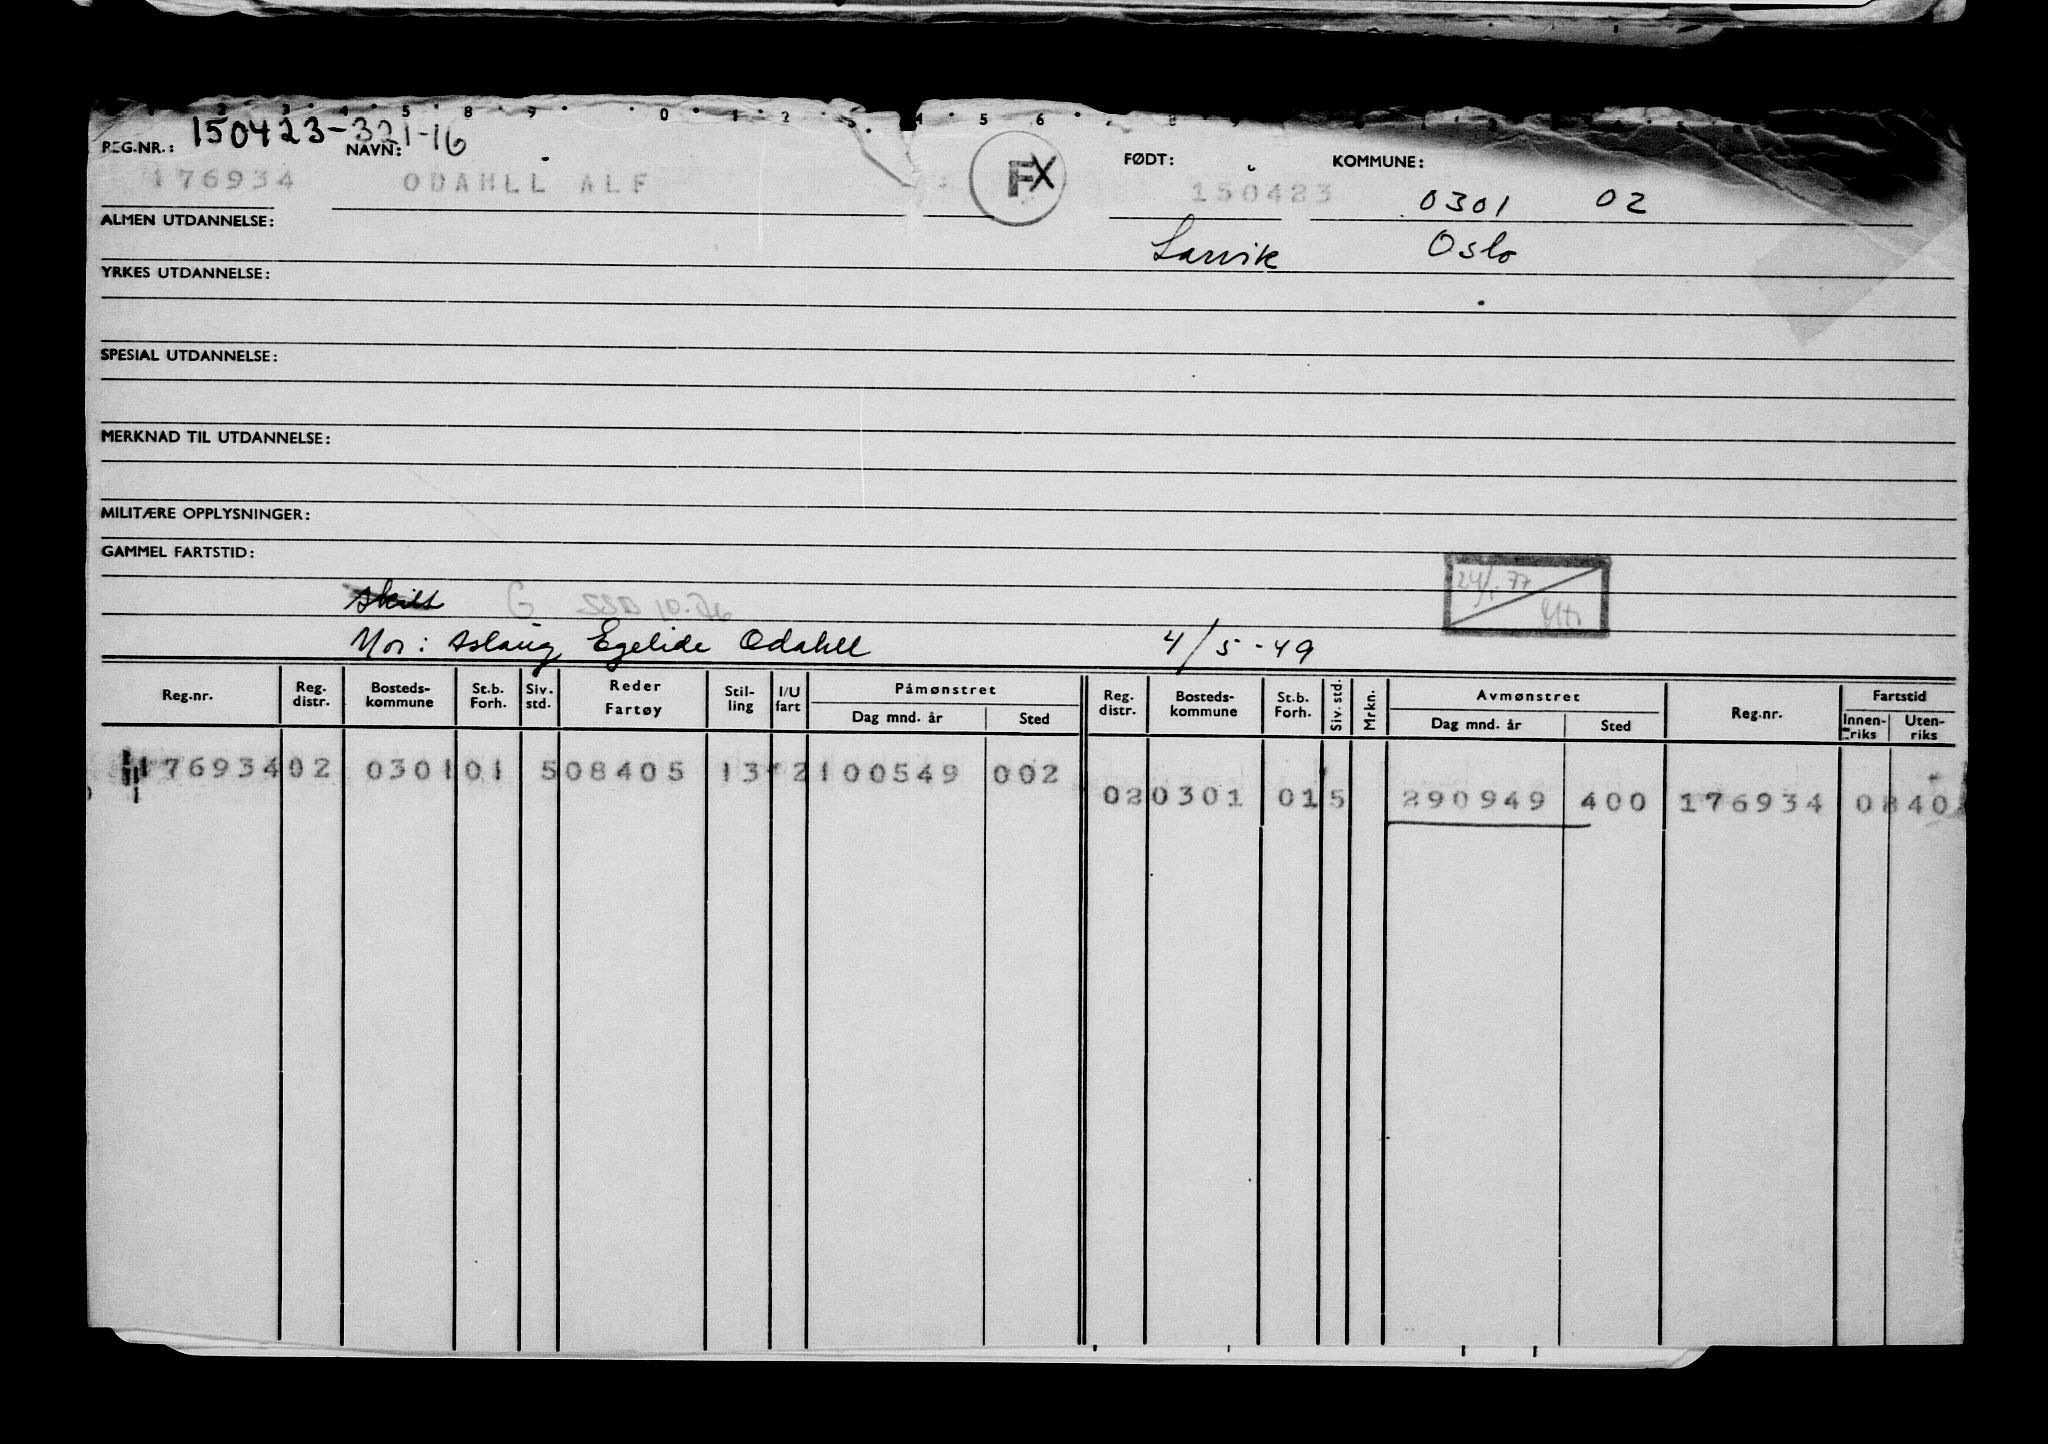 2 3 4 5 8 9 0 1 2 3 4 5 6
150423-321-16
REG.NR.: NAVN: FØDT: KOMMUNE:
176934 ODAHLL ALF FX 150423 0301 02
ALMEN UTDANNELSE: Larvik Oslo
YRKES UTDANNELSE:
SPESIAL UTDANNELSE:
MERKNAD TIL UTDANNELSE:
MILITÆRE OPPLYSNINGER:
GAMMEL FARTSTID:
skilt G
Mor: Aslaug Egelide Odahll 4/5-49
Reg.nr. Reg. distr. Bosteds- kommune St.b. Forh. Siv. std. Reder Fartøy Stil- ling I/U fart Påmønstret Dag mnd. år Sted Reg. distr. Bosteds- kommune St.b. Forh. Siv. std. Mrkn. Avmønstret Dag mnd. år Sted Reg.nr. Fartstid Innen- riks Uten- riks
176934 02 0301 01 5 08405 13 2 100549 002
02 0301 01 5 290949 400 176934 0840